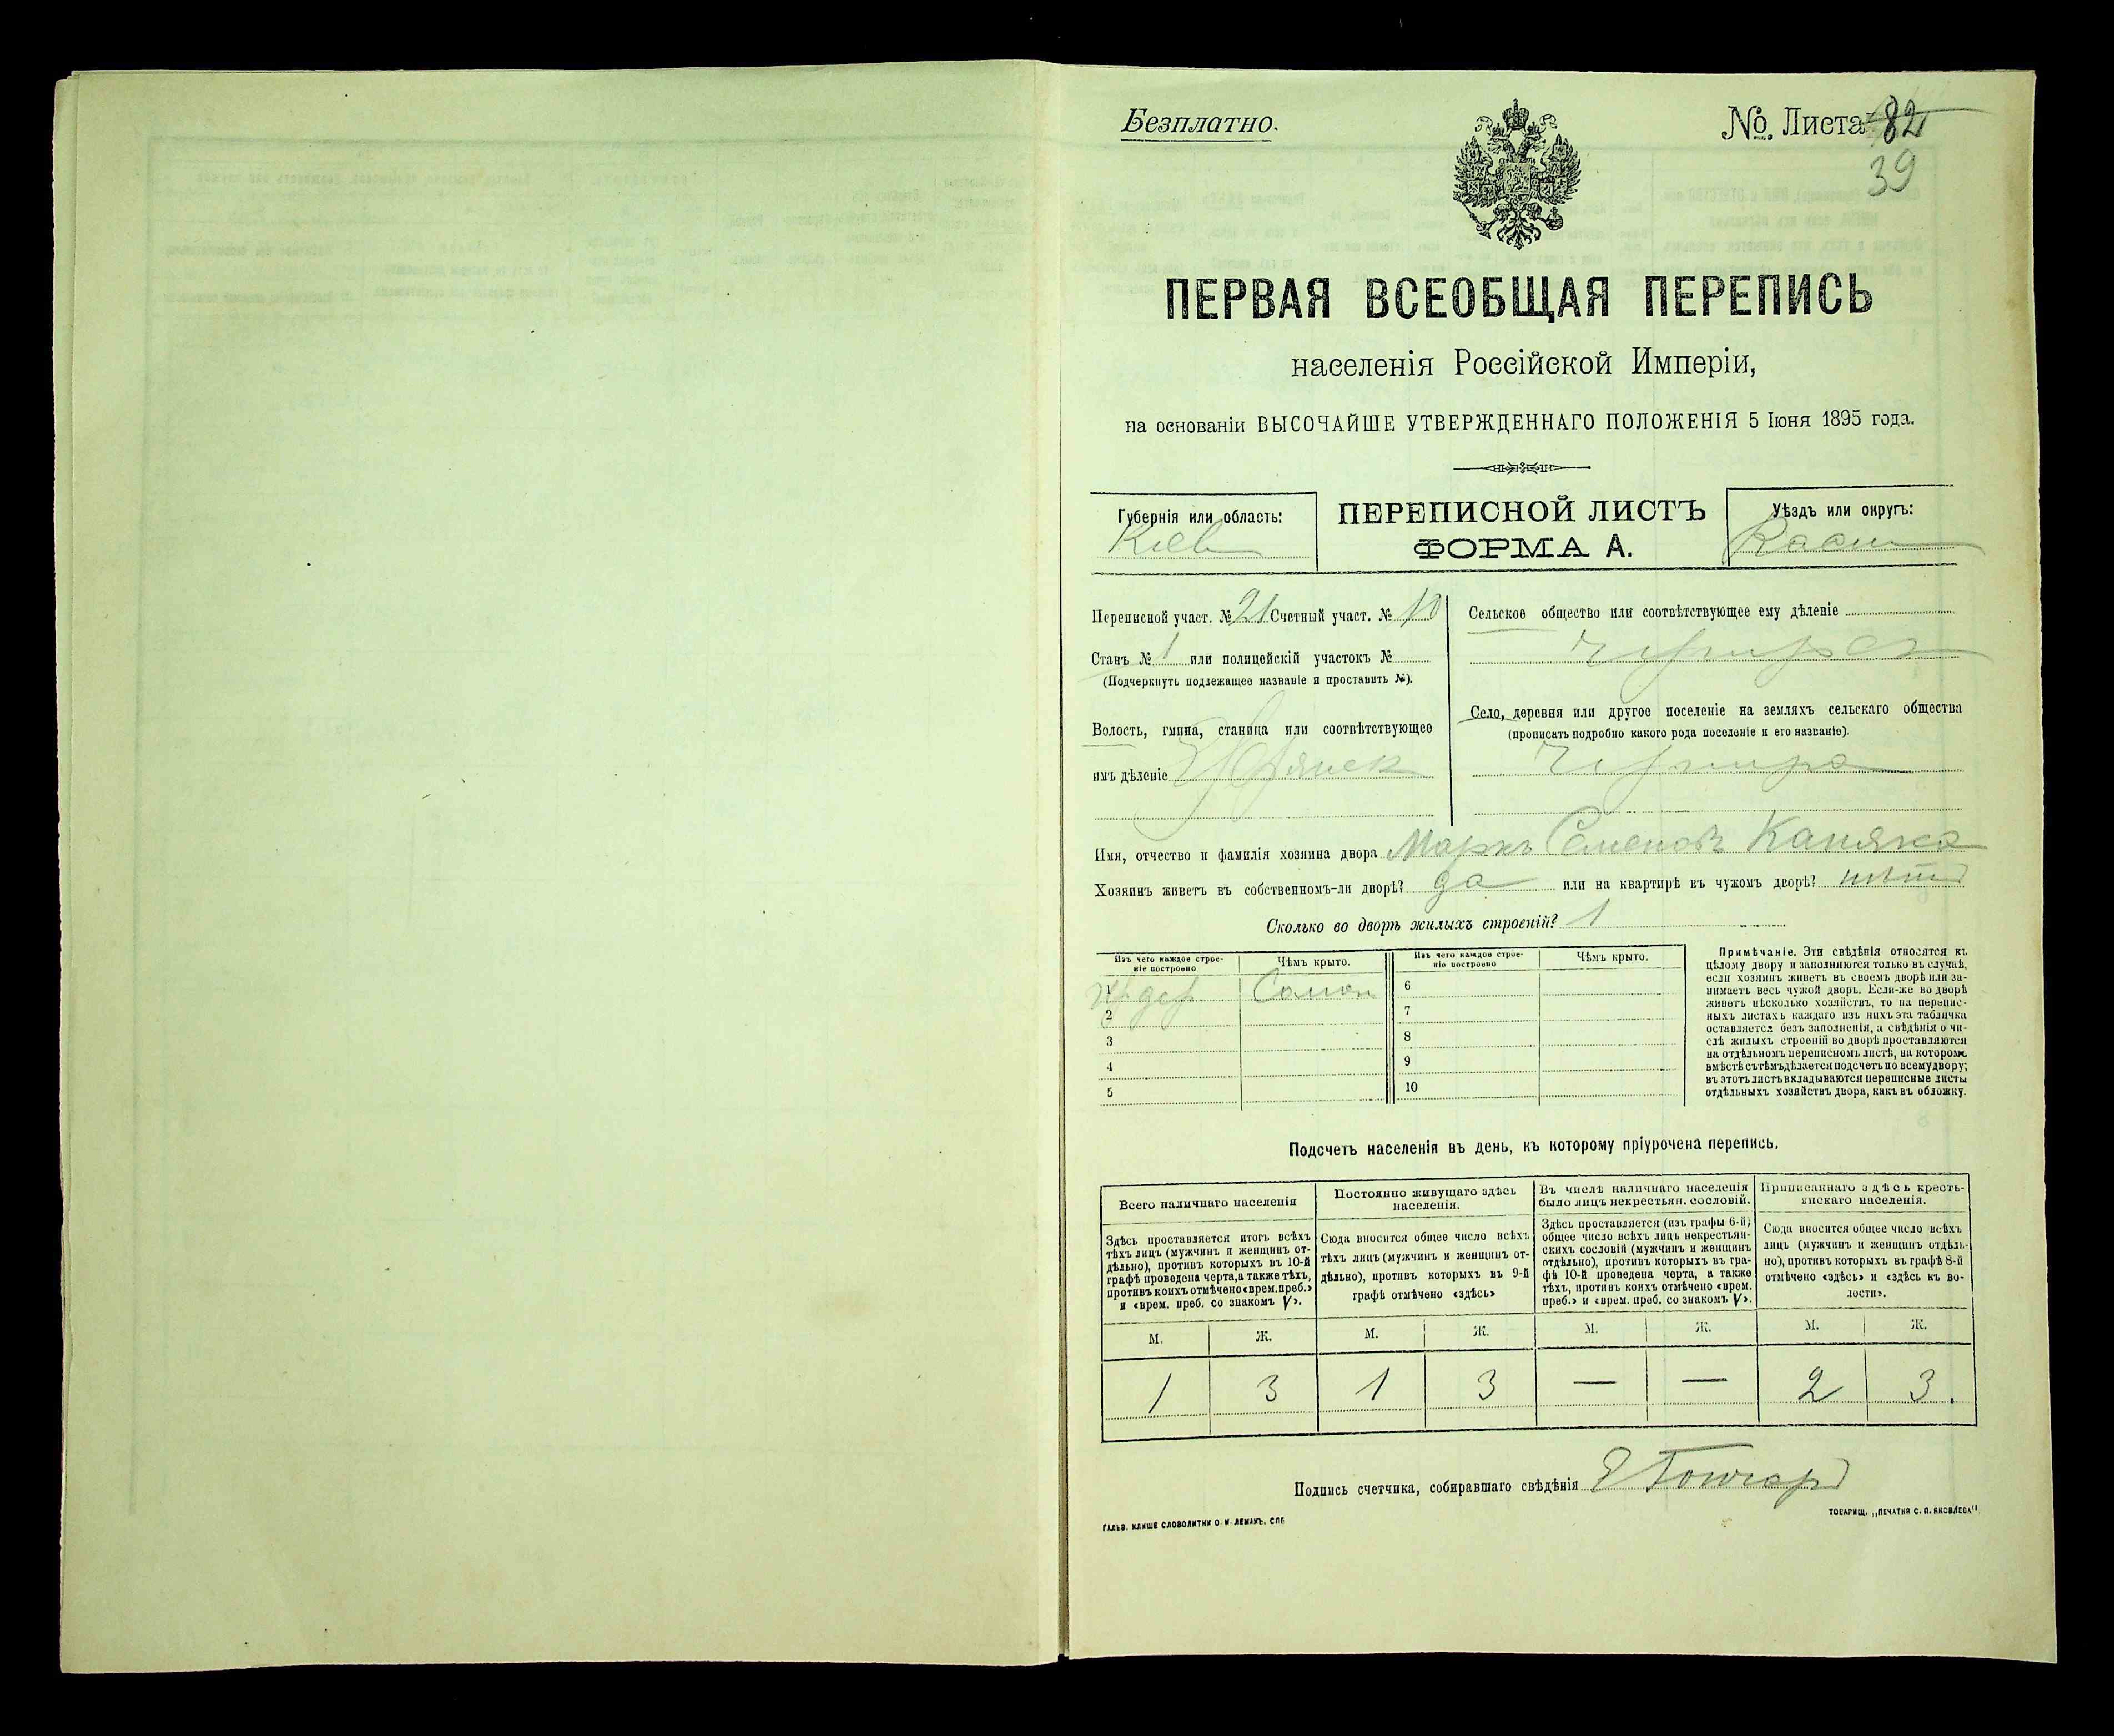 Безплатно.
№ Листа 82
39
ПЕРВАЯ ВСЕОБЩАЯ ПЕРЕПИСЬ
населенія Россійской Имперіи,
на основаніи ВЫСОЧАЙШЕ УТВЕРЖДЕННАГО ПОЛОЖЕНІЯ 5 Іюня 1895 года.
Губернія или область:
Кіев
ПЕРЕПИСНОЙ ЛИСТЪ
ФОРМА А.
Уѣздъ или округъ:
Переписной участ. № 21 Счетный участ. № 10
Станъ № 1 или полицейскій участокъ №
(Подчеркнуть подлежащее названіе и проставить №).
Волость, гмина, станица или соотвѣтствующее
имъ дѣленіе
Сельское общество или соотвѣтствующее ему дѣленіе
Село, деревня или другое поселеніе на земляхъ сельскаго общества
(прописать подробно какого рода поселеніе и его названіе).
Имя, отчество и фамилія хозяина двора Маркъ Семеновъ Каняка
Хозяинъ живетъ въ собственномъ-ли дворѣ? да или на квартирѣ въ чужомъ дворѣ? нѣтъ
Сколько во дворѣ жилыхъ строеній? 1
Изъ чего каждое строе-
ніе построено
Чѣмъ крыто.
Изъ чего каждое строе-
ніе построено
Чѣмъ крыто.
1 дер Солом 6
2 7
3 8
4 9
5 10
Примѣчаніе. Эти свѣдѣнія относятся къ
цѣлому двору и заполняются только въ случаѣ,
если хозяинъ живетъ въ своемъ дворѣ или за-
нимаетъ весь чужой дворъ. Если-же во дворѣ
живетъ нѣсколько хозяйствъ, то на перепис-
ныхъ листахъ каждаго изъ нихъ эта табличка
оставляется безъ заполненія, а свѣдѣнія о чи-
слѣ жилыхъ строеній во дворѣ проставляются
на отдѣльномъ переписномъ листѣ, на которомъ
вмѣстѣ съ тѣмъ дѣлается подсчетъ по всему двору;
въ этотъ листъ вкладываются переписные листы
отдѣльныхъ хозяйствъ двора, какъ въ обложку.
Подсчетъ населенія въ день, къ которому пріурочена перепись.
Всего наличнаго населенія
Здѣсь проставляется итогъ всѣхъ
тѣхъ лицъ (мужчинъ и женщинъ от-
дѣльно), противъ которыхъ въ 10-й
графѣ проведена черта, а также тѣхъ,
противъ коихъ отмѣчено «врем. преб.»
и «врем. преб. со знакомъ V».
Постоянно живущаго здѣсь
населенія.
Сюда вносится общее число всѣхъ
тѣхъ лицъ (мужчинъ и женщинъ от-
дѣльно), противъ которыхъ въ 9-й
графѣ отмѣчено «здѣсь»
Въ числѣ наличнаго населенія
было лицъ некрестьян. сословій.
Здѣсь проставляется (изъ графы 6-й)
общее число всѣхъ лицъ некрестьян-
скихъ сословій (мужчинъ и женщинъ
отдѣльно), противъ которыхъ въ гра-
фѣ 10-й проведена черта, а также
тѣхъ, противъ коихъ отмѣчено «врем.
преб.» и «врем. преб. со знакомъ V».
Приписаннаго здѣсь кресть-
янскаго населенія.
Сюда вносится общее число всѣхъ
лицъ (мужчинъ и женщинъ отдѣль-
но), противъ которыхъ въ графѣ 8-й
отмѣчено «здѣсь» и «здѣсь къ во-
лости».
М. Ж. М. Ж. М. Ж. М. Ж.
1 3 1 3 — — 2 3.
Подпись счетчика, собиравшаго свѣдѣнія
ГАЛЬВ. КЛИШЕ СЛОВОЛИТНИ О. И. ЛЕМАНЪ, СПБ
ТОВАРИЩ. „ПЕЧАТНЯ С. П. ЯКОВЛЕВА"